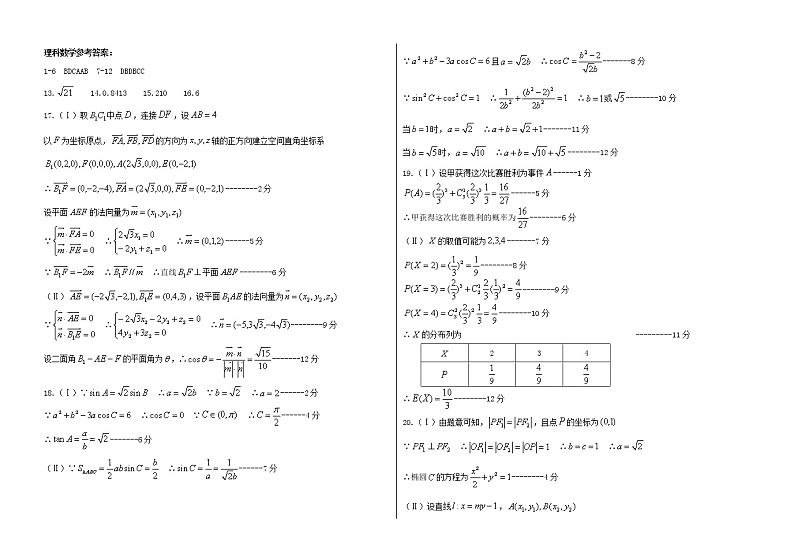 理科数学参考答案：
1-6 BDCAAB 7-12 DBDBCC
13. √21 14.0.8413 15.210 16.6
17.(Ⅰ)取B₁C₁中点D，连接DF，设AB=4
以F为坐标原点，FA,FB,FD的方向为x,y,z轴的正方向建立空间直角坐标系
B₁(0,2,0),F(0,0,0),A(2√3,0,0),E(0,-2,1)
∴B₁F=(0,-2,-4),FA=(2√3,0,0),FE=(0,-2,1)--------2分
设平面AEF的法向量为m=(x₁,y₁,z₁)
∵{m·FA=0 m·FE=0 ∴{2√3x₁=0 -2y₁+z₁=0 ∴m=(0,1,2)------5分
∵B₁F=-2m ∴B₁F//m ∴直线B₁F⊥平面AEF--------6分
(Ⅱ)AE=(-2√3,-2,1),B₁E=(0,4,3)，设平面B₁AE的法向量为n=(x₂,y₂,z₂)
∵{n·AE=0 n·B₁E=0 ∴{-2√3x₂-2y₂+z₂=0 4y₂+3z₂=0 ∴n=(-5,3√3,-4√3)--------9分
设二面角B₁-AE-F的平面角为θ，∴cosθ=-m·n/|m||n|=√15/10-------12分
18.(Ⅰ)∵sinA=√2sinB ∴a=√2b ∵b=√2 ∴a=2------2分
∵a²+b²-3acosC=6 ∴cosC=0 ∵C∈(0,π) ∴C=π/2------4分
∴tanA=a/b=√2-------6分
(Ⅱ)∵S△ABC=1/2absinC=b/2 ∴sinC=1/a=1/√2b------7分
∵a²+b²-3acosC=6且a=√2b ∴cosC=(b²-2)/√2b-------8分
∵sin²C+cos²C=1 ∴1/2b²+(b²-2)²/2b²=1 ∴b=1或√5--------10分
当b=1时，a=√2 ∴a+b=√2+1-------11分
当b=√5时，a=√10 ∴a+b=√10+√5--------12分
19.(Ⅰ)设甲获得这次比赛胜利为事件A------1分
P(A)=(2/3)³+C₃²(2/3)³1/3=16/27------5分
∴甲获得这次比赛胜利的概率为16/27--------6分
(Ⅱ)X的取值可能为2,3,4-------7分
P(X=2)=(1/3)²=1/9--------8分
P(X=3)=(2/3)³+C₂¹2/3(1/3)²=4/9---------9分
P(X=4)=C₃²(2/3)²1/3=4/9--------10分
∴X的分布列为 ---------11分
X 2 3 4
P 1/9 4/9 4/9
∴E(X)=10/3--------12分
20.(Ⅰ)由题意可知，|PF₁|=|PF₂|，且点P的坐标为(0,1)
∵PF₁⊥PF₂ ∴|OF₁|=|OF₂|=|OP|=1 ∴b=c=1 ∴a=√2
∴椭圆C的方程为x²/2+y²=1--------4分
(Ⅱ)设直线l:x=my-1，A(x₁,y₁),B(x₂,y₂)